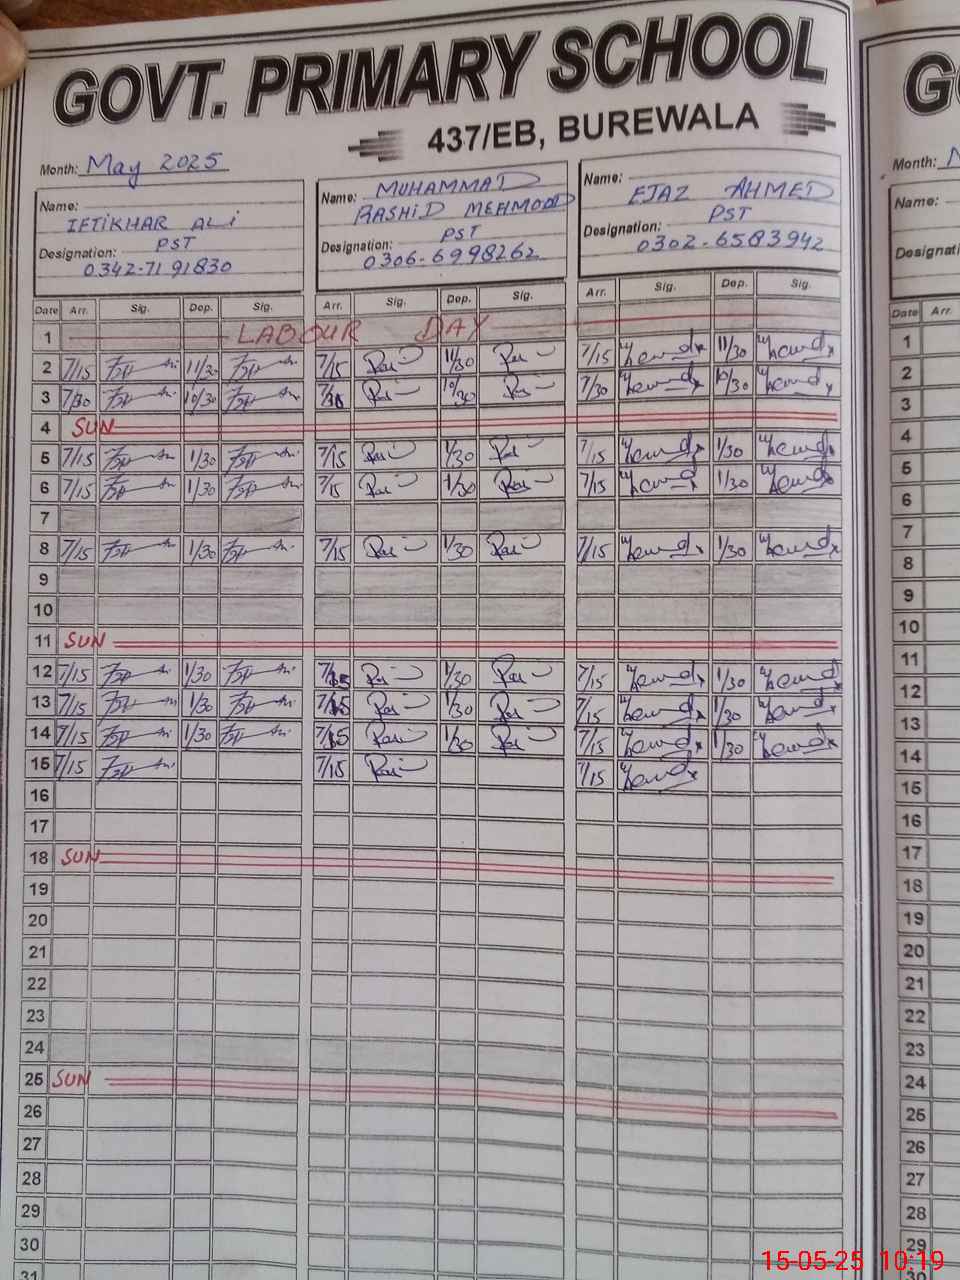 GOVT. PRIMARY SCHOOL
437/EB, BUREWALA
Month: May 2025
Name: IFTIKHAR ALI
Designation: PST
0342-7191830
Name: MUHAMMAD
RASHID MEHMOOD
Designation: PST
0306-6998262
Name: EJAZ AHMED
Designation: PST
0302-6583942
Date Arr. Sig. Dep. Sig. Arr. Sig. Dep. Sig. Arr. Sig. Dep. Sig.
1 LABOUR DAY
2 7/15 11/30 7/15 11/30 7/15 11/30
3 7/30 10/30 10/30 7/30 10/30
4 SUN
5 7/15 1/30 7/15 1/30 7/15 1/30
6 7/15 1/30 7/15 1/30 7/15 1/30
7
8 7/15 1/30 7/15 1/30 7/15 1/30
9
10
11 SUN
12 7/15 1/30 1/30 7/15 1/30
13 7/15 1/30 1/30 7/15 1/30
14 7/15 1/30 1/30 7/15 1/30
15 7/15 7/15 7/15
16
17
18 SUN
19
20
21
22
23
24
25 SUN
26
27
28
29
30
31
Month:
Name:
Designati
Date Arr.
1
2
3
4
5
6
7
8
9
10
11
12
13
14
15
16
17
18
19
20
21
22
23
24
25
26
27
28
29
30
15-05-25 10:19